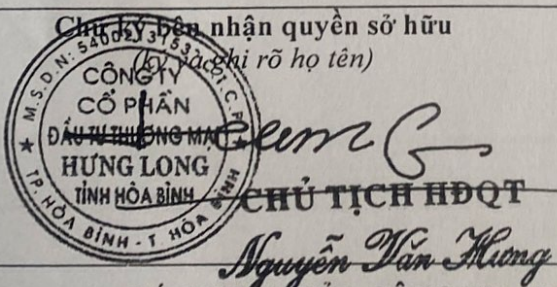 Chữ ký bên nhận quyền sở hữu
(ký và ghi rõ họ tên)
CÔNG TY
CỔ PHẦN
ĐẦU TƯ THƯƠNG MẠI
HƯNG LONG
TỈNH HÒA BÌNH
M.S.D.N:
TP. HÒA BÌNH - T. HÒA BÌNH
CHỦ TỊCH HĐQT
Nguyễn Văn Hưng